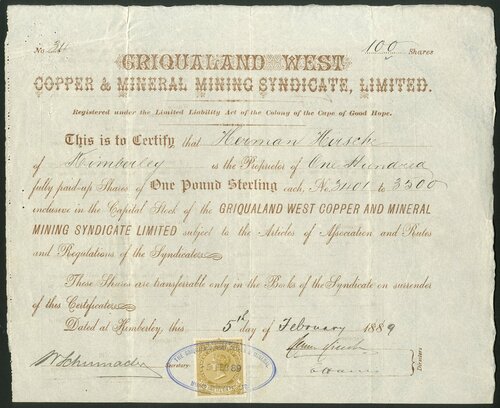 No. 34 100 Shares
GRIQUALAND WEST
COPPER & MINERAL MINING SYNDICATE, LIMITED.
Registered under the Limited Liability Act of the Colony of the Cape of Good Hope.
This is to Certify that Herman Hirsche
of Kimberley is the Proprietor of One Hundred
fully paid-up Shares of One Pound Sterling each, No. 3401 to 3500
inclusive in the Capital Stock of the GRIQUALAND WEST COPPER AND MINERAL
MINING SYNDICATE LIMITED subject to the Articles of Association and Rules
and Regulations of the Syndicate.
These Shares are transferrable only in the Books of the Syndicate on surrender
of this Certificate.
Dated at Kimberley, this 5th day of February 1889
Secretary.
Directors